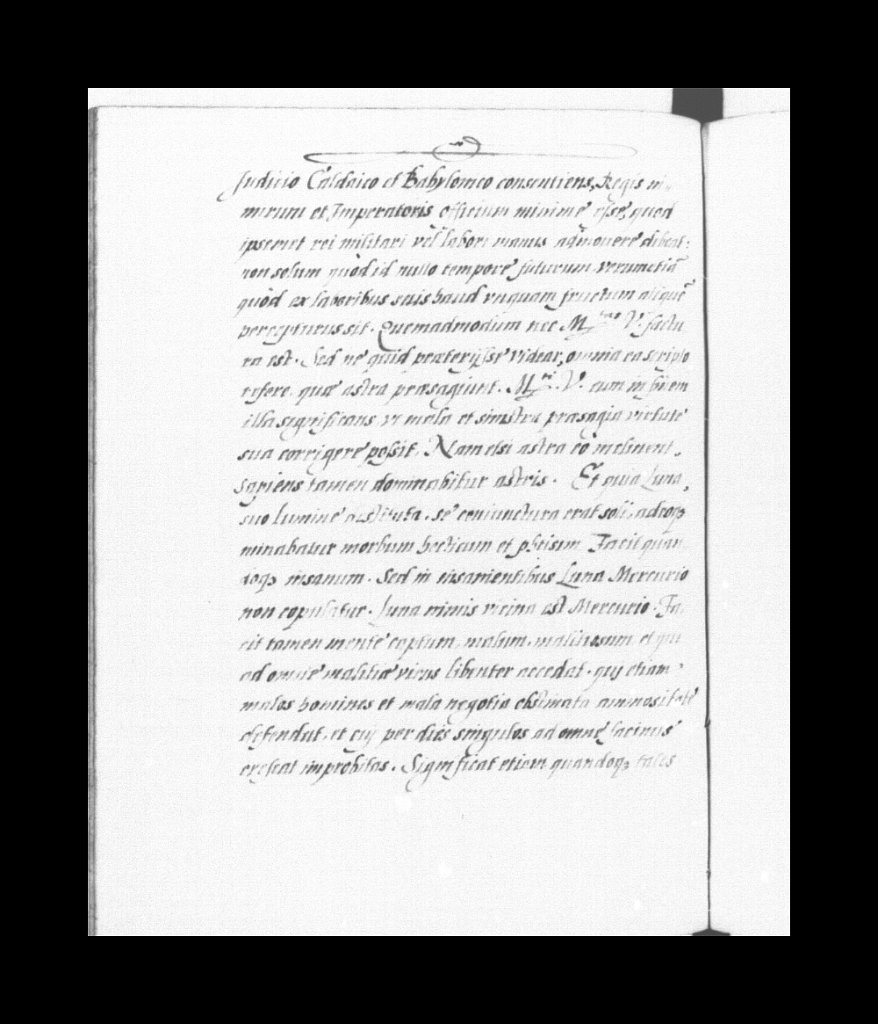 Judicio Caldaico et Babylonico consentiens, Regis ni
mirum et Imperatoris officium minime esse, quod
ipsemet rei militari vel labori manus admouere debeat:
non solum quòd id nullo tempore futurum, verumetiā
quòd ex laboribus suis haud vnquam fructum aliquē
percepturus sit. Quemadmodum nec M. V. factu
ra est. Sed ne quid præterijsse videar, omnia ea scripto
refero, quæ astra præsagiunt. M. V. cum in finem
illa significans vt mala et sinistra præsagia virtute
sua corrigere possit. Nam etsi astra eò inclinent,
Sapiens tamen dominabitur astris. Et quia Luna,
suo lumine destituta, se coniunctura erat soli, adeoq3
minabatur morbum hecticum et phtisim Facit quan
doq3 insanum. Sed in insanientibus Luna Mercurio
non copulatur. Luna nimis vicina est Mercurio. Fa
cit tamen mente captum, malum, malitiosum et qui
ad omne malitiæ virus libenter accedat. qui etiam
malos homines et mala negotia animositate
defendat, et cui per dies singulos ad omne facinus
crescat improbitas. Significat etiam quandoq3 tales